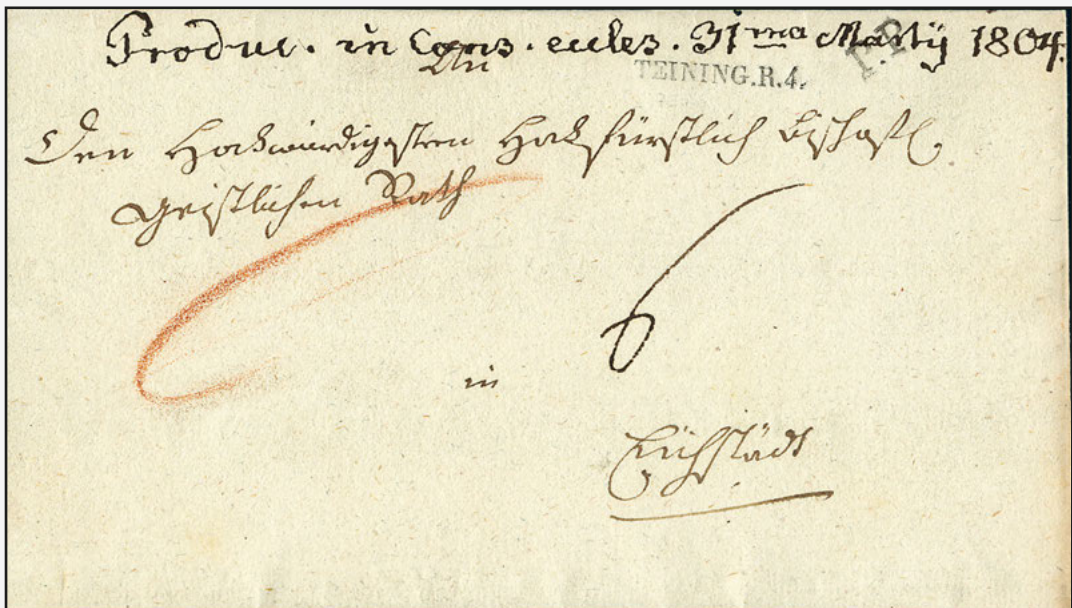 Produc. in Cons. eccles. 31ma Martÿ 1804.
An
TEINING.R.4.
P.P.
Den Hochwürdigsten Hochfürstlich Bischöfl.
Geistlichen Rath
6
in
Eichstädt